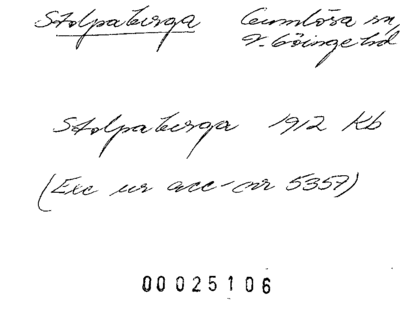 Stolpaberga Gumlösa sn,
V. Göinge hd
Stolpaberga 1912 Kb
(Exc ur acc-nr 5357)
00025106